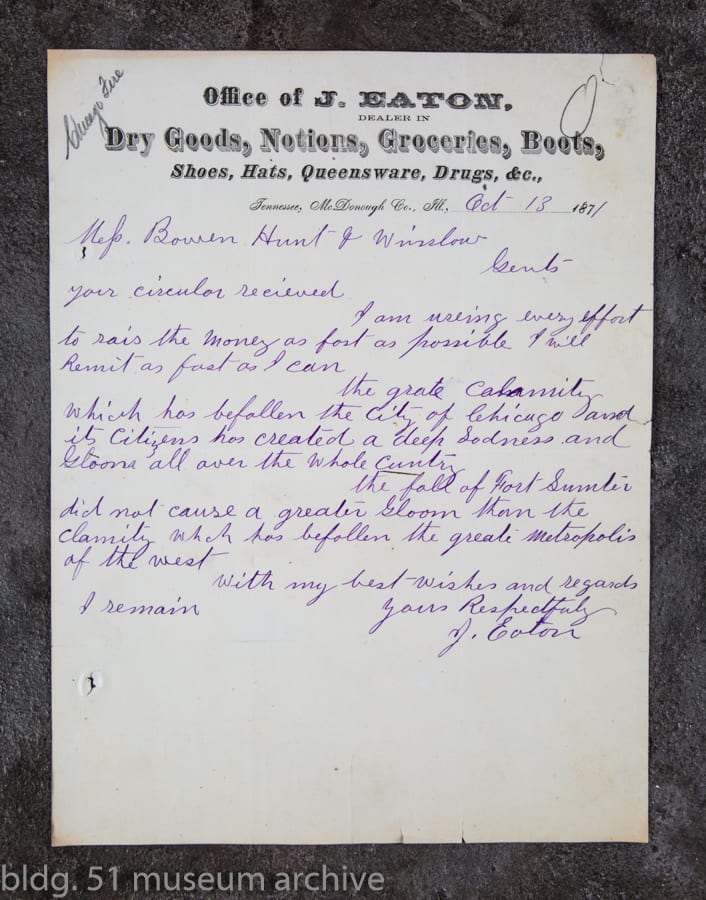 Chicago Fire
Office of J. EATON,
DEALER IN
Dry Goods, Notions, Groceries, Boots,
Shoes, Hats, Queensware, Drugs, &c.,
Tennessee, McDonough Co., Ill., Oct 13 1871
Mess. Bowen Hunt & Winslow
Gents
your circular recieved
I am useing every effort
to rais the money as fast as possible I will
Remit as fast as I can
the grate Calamity
which has befallen the City of Chicago and
its Citizens has created a deep Sadness and
Gloom all over the whole Cuntry
the fall of Fort Sumter
did not cause a greater Gloom than the
Clamity whch has befollen the greate metropolis
of the west
with my best wishes and regards
I remain yours Respectfuly
J. Eaton
bldg. 51 museum archive